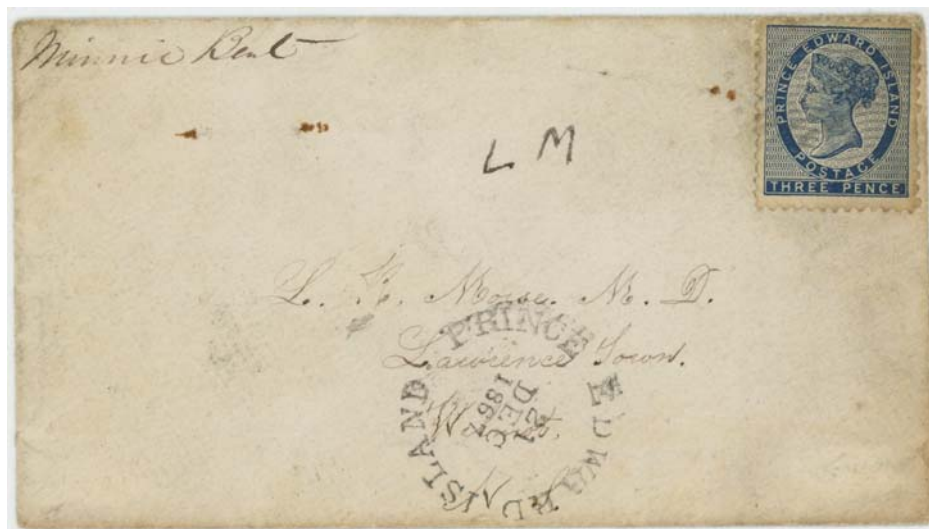 Minnie Bent
PRINCE EDWARD ISLAND
POSTAGE
THREE PENCE
L M
L. R. Morse. M. D.
Lawrence Town.
West.
N. S.
PRINCE EDWARD ISLAND
DEC